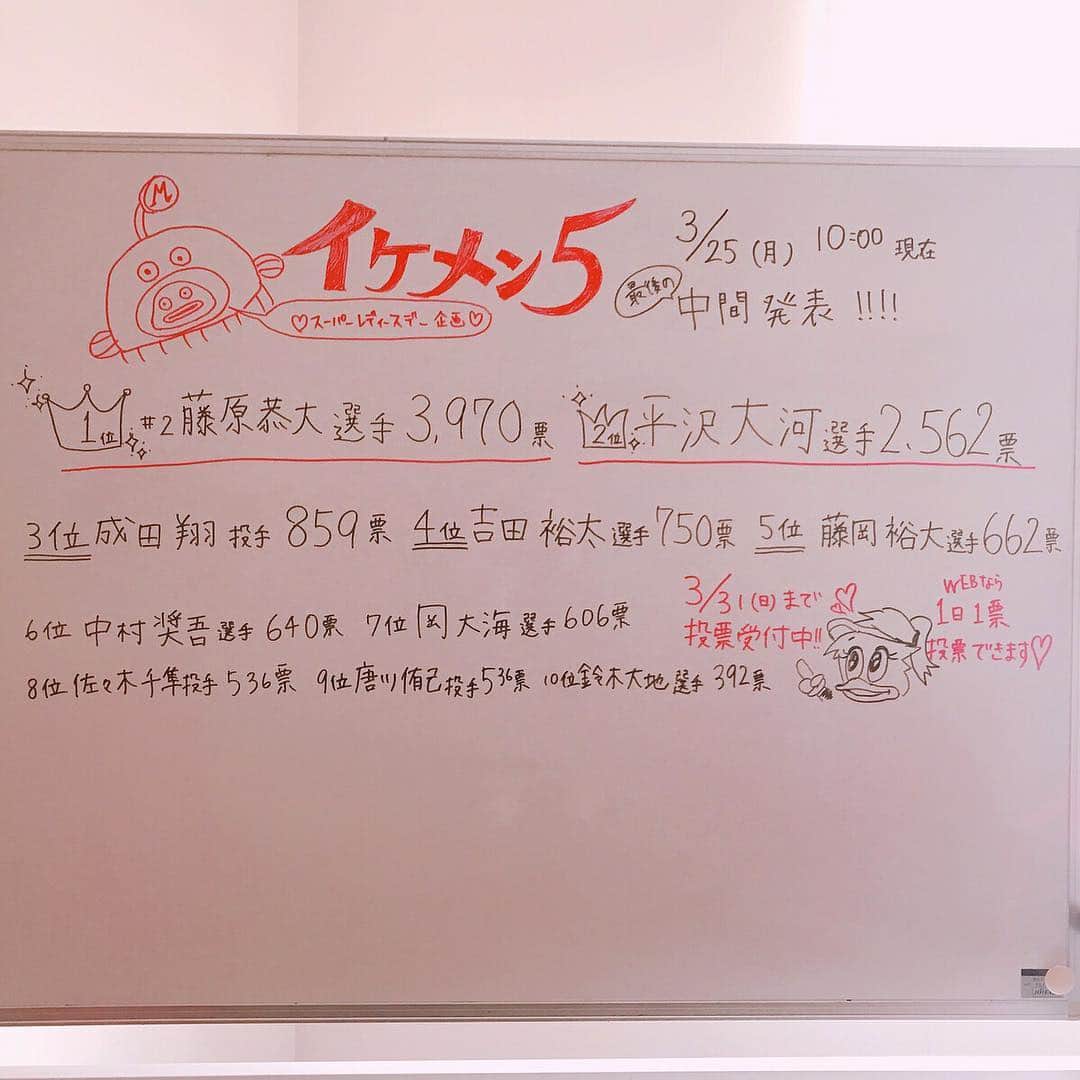 M
イケメン5
♡スーパーレディースデー企画♡
3/25(月) 10:00 現在
最後の
中間発表!!!!
1位 #2藤原恭大選手3,970票
2位 平沢大河選手2,562票
3位 成田翔投手 859票 4位 吉田裕太選手750票 5位 藤岡裕大選手662票
6位 中村奨吾選手 640票 7位 岡大海選手606票
8位 佐々木千隼投手 536票 9位 唐川侑己投手536票 10位 鈴木大地選手 392票
3/31(日)まで
投票受付中!!
WEBなら
1日1票
投票できます♡